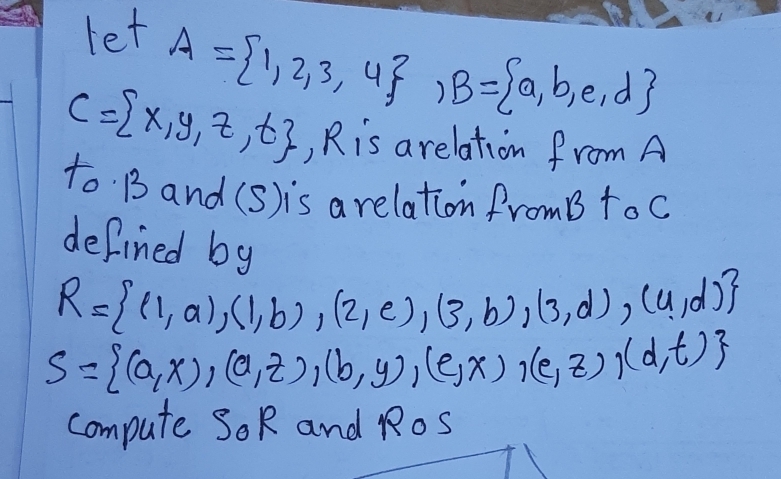 let A = {1, 2, 3, 4}, B = {a, b, e, d}
C = {x, y, z, t}, R is a relation from A
to B and (S) is a relation from B to C
defined by
R = {(1, a), (1, b), (2, e), (3, b), (3, d), (4, d)}
S = {(a, x), (a, z), (b, y), (e, x), (e, z), (d, t)}
compute SoR and RoS